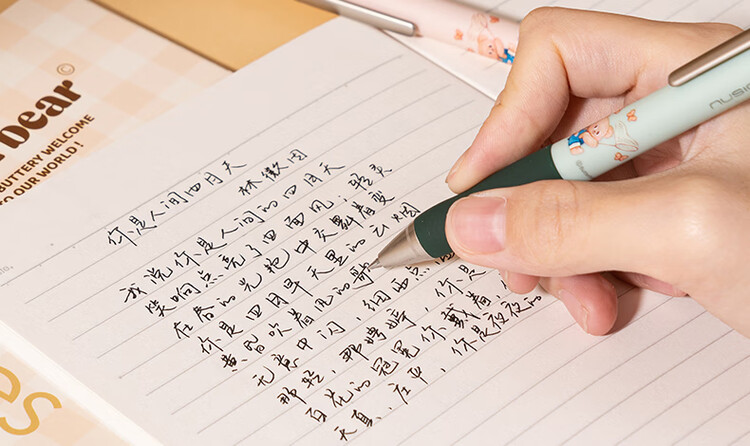 dear ©
BUTTERY WELCOME
OUR WORLD !
你是人间四月天
林徽因
我说你是人间的四月天
笑响点亮了四面风；轻灵
在春的光艳中交舞着变
你是四月早天里的云烟
黄昏吹着风的软
无意中闪，细雨点
那轻，那娉婷，你是
百花的冠冕你戴着，
天真，庄严，你是夜夜的
es